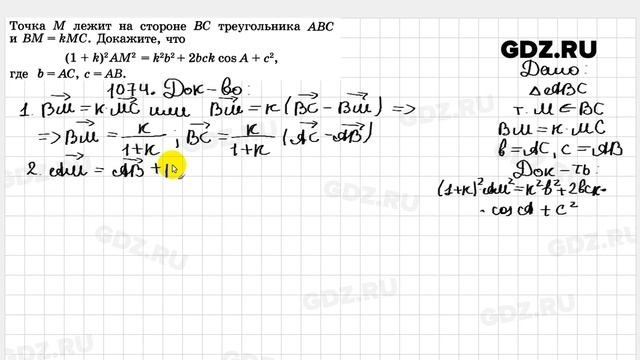 Точка M лежит на стороне BC треугольника ABC
и BM = kMC. Докажите, что
(1 + k)²AM² = k²b² + 2bck cos A + c²,
где b = AC, c = AB.
GDZ.RU
1074. Док-во:
1. BM→ = к MC→ или BM→ = к (BC→ − BM→) =>
=> BM→ = к/(1+к) ; BC→ = к/(1+к) (AC→ − AB→)
2. AM→ = AB→ +
Дано:
△ABC
т. M ∈ BC
BM = к · MC
в = AC, c = AB
Док-ть:
(1+к)²AM² = к²в² + 2вcк ·
· cos A + c²
GDZ.RU
GDZ.RU
GDZ.RU
GDZ.RU